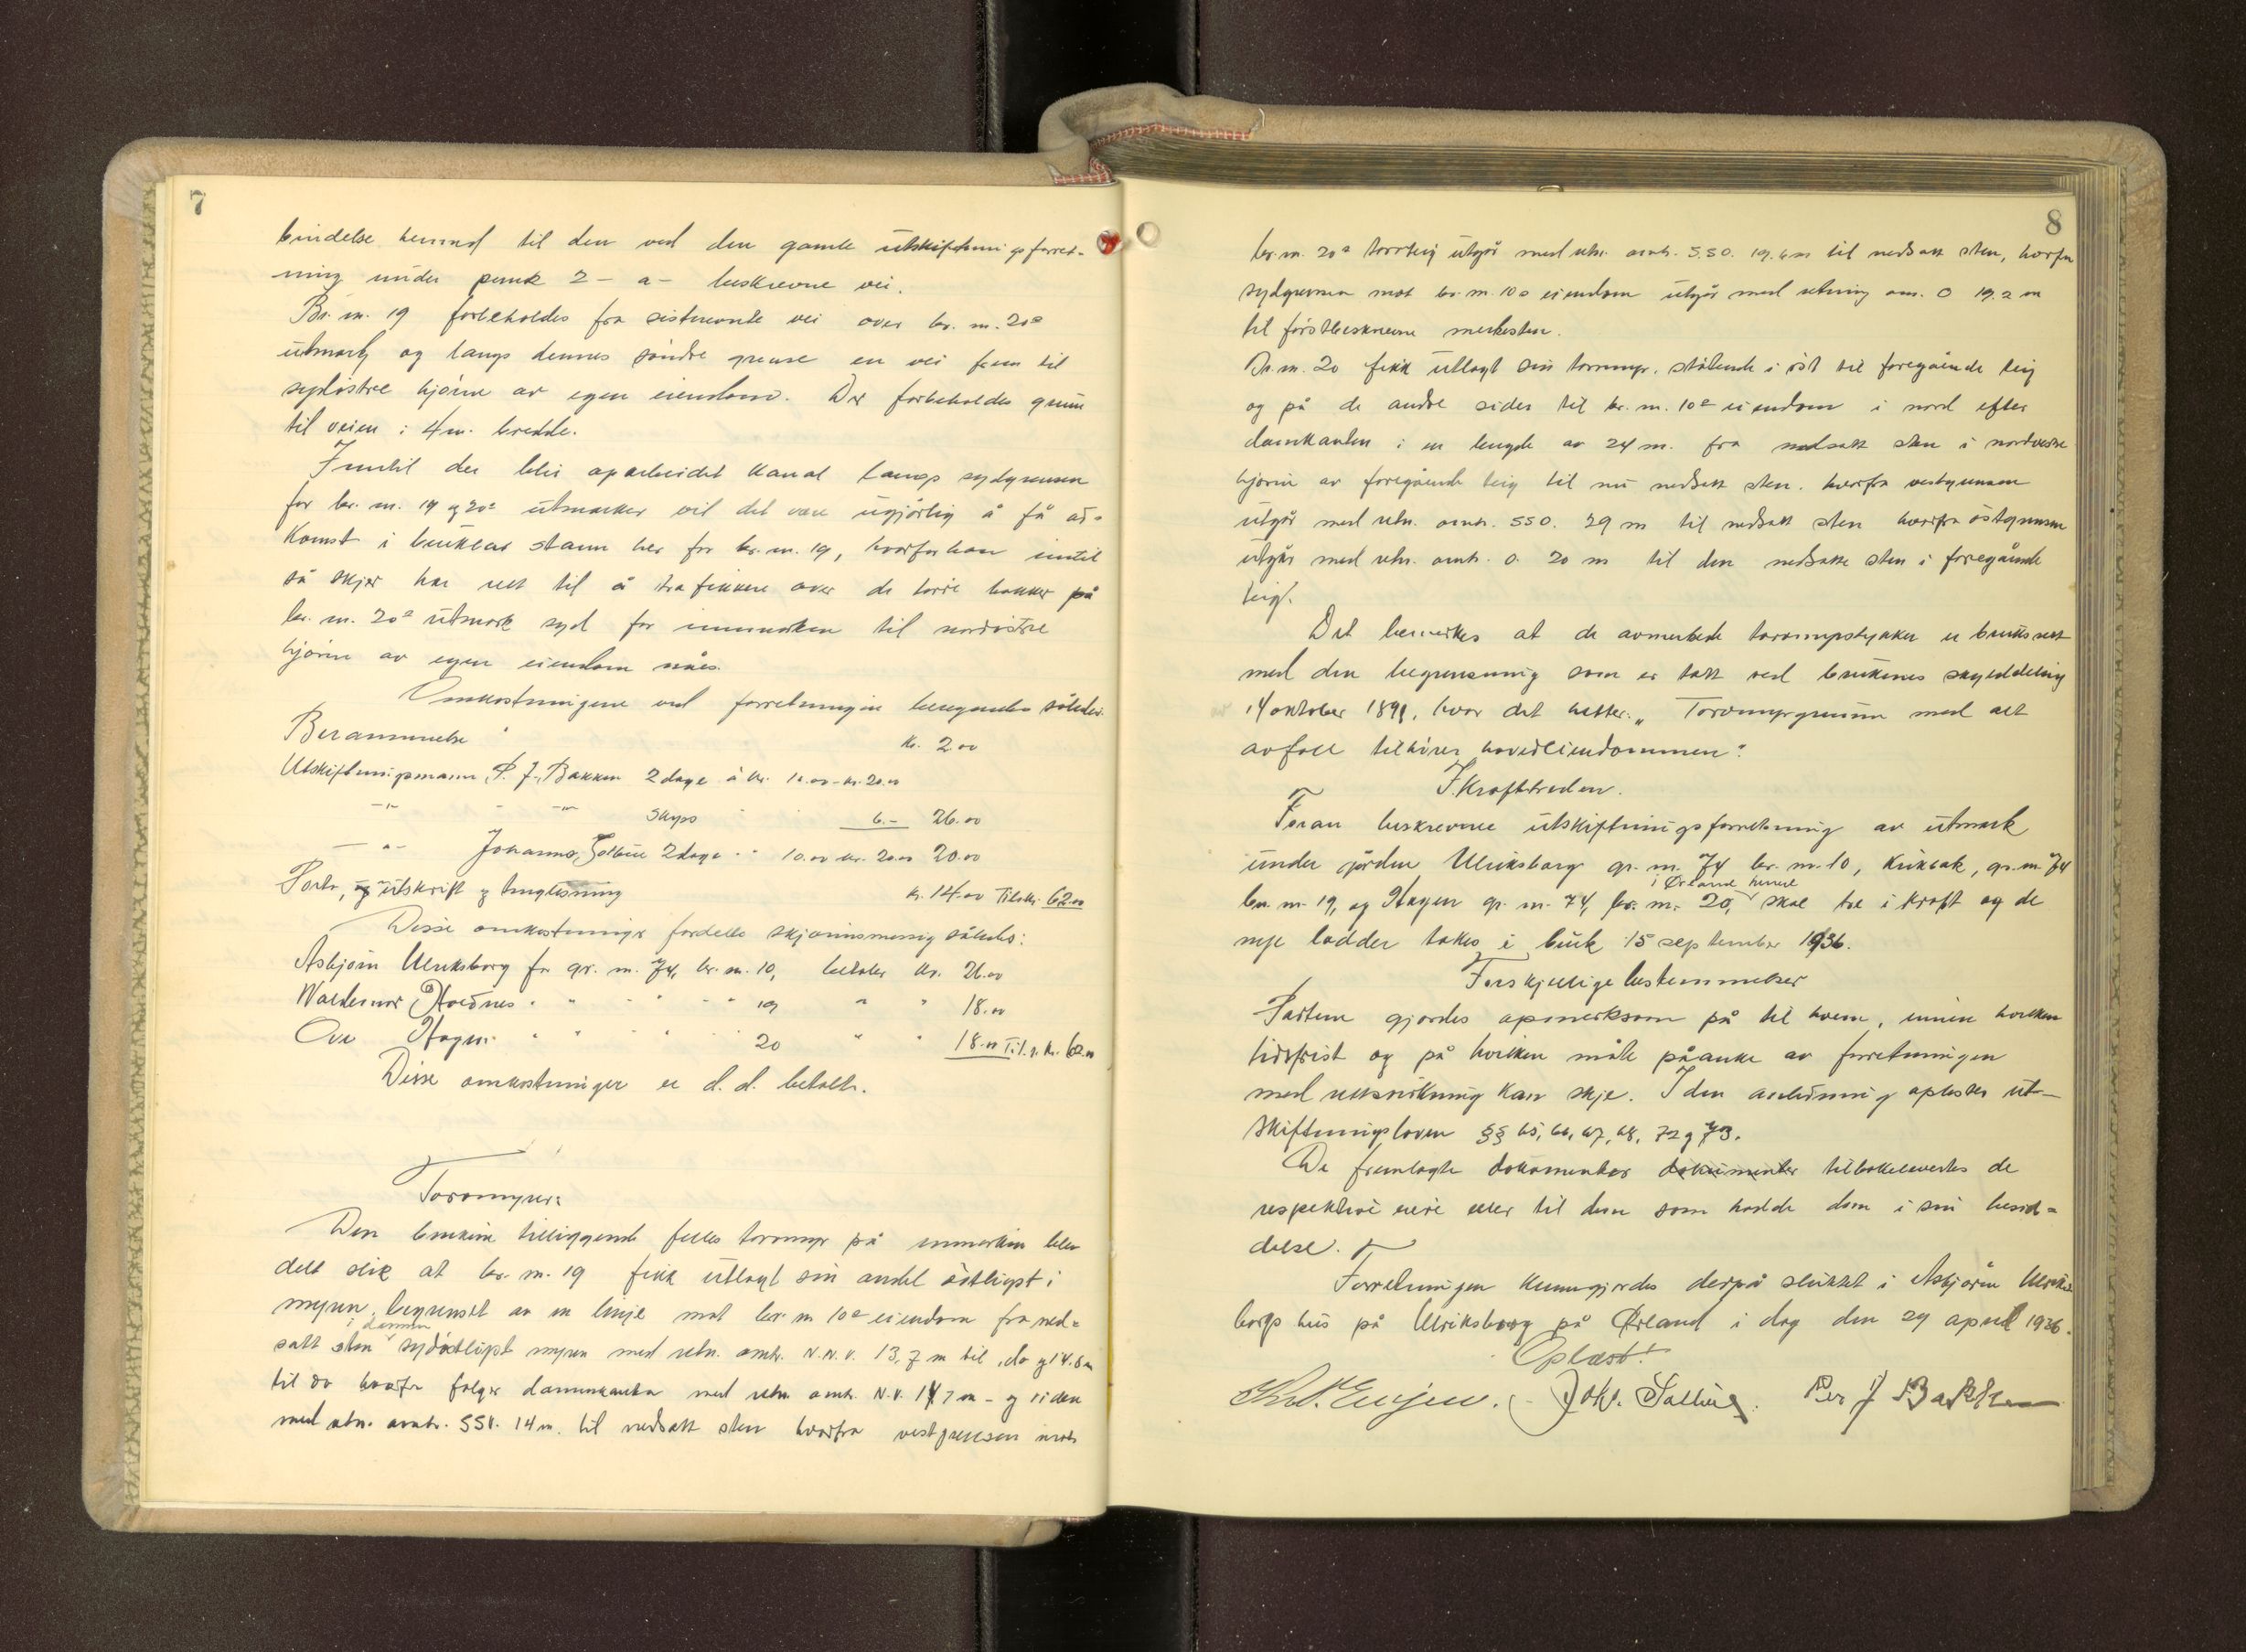 7
bindelse herved til den ved den gamle utskiftningsforret-
ning under punk 2 - a - beskrevne vei.
Br. nr. 19 forbeholdes fra sistnevnte vei over br. nr. 20s
utmark og langs dennes söndre grense en vei frem til
sydöstre hjörne av egen eiendom. Der forbeholdes grunn
til veien i 4m. bredde.
Inntil der blir oparbeidet kanal langs sydgrensen
for br. nr. 19 og 20s utmarker vil det være ugjörlig å få at-
komst i brukbar stann her for br. nr. 19, hvorfor han inntil
så skjer har rett til å trafikkere over de törre bakker på
br. nr. 20s utmark syd for innmarken til nordöstre
hjörne av egen eiendom nåes.
Omkostningene ved forretningen beregnedes således:
Berammelse kr. 2.00
Utskiftningsmann P. J. Bakken 2 dage à kr. 10.00 - kr. 20.00
-"- -"- skyss 6.- 26.00
-"- Johannes Solbue 2 dage " " 10.00 kr. 20.00 20.00
Porto, og utskrift og tinglesning kr. 14.00 Tils. kr. 62.00
Disse omkostninger fordeles skjönnsmessig således:
Asbjörn Ulriksborg for gr. nr. 74, br. nr. 10, betaler kr. 26.00
Waldemar Hoednes " " " " " 19 " " 18.00
Ove Hagen " " " " " 20 " " 18.00 Til.s. kr. 62.00
Disse omkostninger er d. d. betalt.
Torvmyren:
Den brukene tilliggende felles torvmyr på innmarken blev
delt slik at br. nr. 19 fikk utlagt sin andel östligst i
myren, begrenset av en linje mot br. nr 10s eiendom fra ned-
i dammen
satt sten sydöstligst myren med retn. omtr. N.N.V. 13,7 m til do og 14.8 m
til do hvorfra fölger damkanten med retn omtr. N.V. 17 m - og siden
med retn. omtr. SSV. 14 m. til nedsatt sten hvorfra vestgrensen mot
8
br. nr. 20s torvteig utgår med retn. omtr. S.S.O. 19.4m til nedsatt sten, hvorfra
sydgrensen mot br. nr. 10s eiendom utgår med retning om. O 19.2 m
til förstbeskrevne merkesten.
Br. nr. 20 fikk utlagt sin torvmyr, stötende i öst til foregående teig
og på de andre sider til br. nr. 10s eiendom i nord efter
damkanten i en lengde av 24 m. fra nedsatt sten i nordvestre
hjörne av foregående teig til nu nedsatt sten. hvorfra vestgrensen
utgår med retn. omtr. SSO. 29 m til nedsatt sten hvorfra östgrensen
utgår med retn. omtr. O. 20 m til den nedsatte sten i foregående
teig.
Det bemerkes at de avmerkede torvmyrstykker er bruksrett
med den begrensning som er tatt ved brukenes skylddeling
14 oktober 1891, hvor det heter: „Torvmyrgrunn med alt
avfall tilhörer hovedeiendommen".
Ikrafttreden.
Foran beskrevne utskiftningsforretning av utmark
under gården Ulriksborg gr. nr. 74 br. nr. 10, Kuksak, gr. nr. 74
i Örland herred
br. nr. 19, og Hagen gr. nr. 74, br. nr. 20, skal tre i kraft og de
nye lodder takes i bruk 15 september 1936.
Forskjellige bestemmelser
Partene gjordes opmerksom på til hvem, innen hvilken
tidsfrist og på hvilken måte påanke av forretningen
med rettsvirkning kan skje. I den anledning oplestes ut-
skiftningsloven §§ 65, 66, 67, 68, 72 og 73.
De fremlagte dokumenter dokumenter tilbakeleverdes de
respektive eiere eller til dem som hadde dem i sin besid-
delse.
Forretningen kunngjordes derpå sluttet i Asbjörn Ulriks-
borgs hus på Ulriksborg på Örland i dag den 29 april 1936.
Oplest!
Joh. Solbue. Per J Bakken